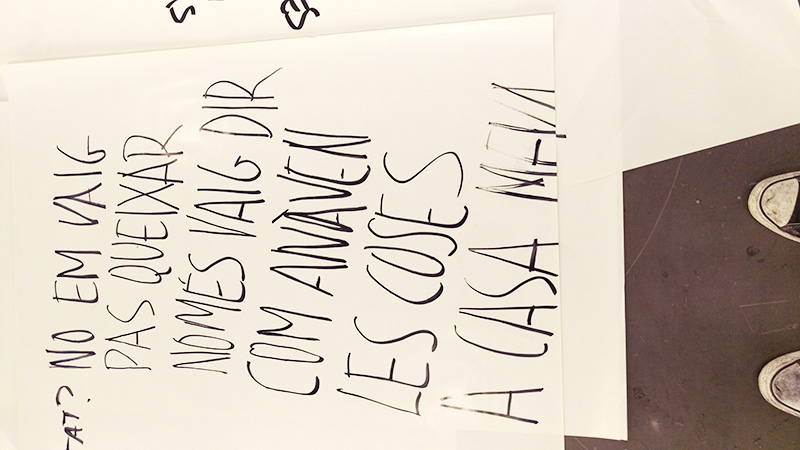 NO EM VAIG
PAS QUEIXAR
NOMÉS VAIG DIR
COM ANÀVEN
LES COSES
A CASA MEVA